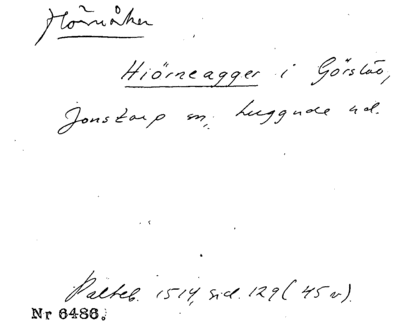 Hörnåker
Hiörneagger i Görslöv,
Jonstorp sn, Luggude hd.
Palteb. 1514, sid. 129 (45 v).
Nr 6486.